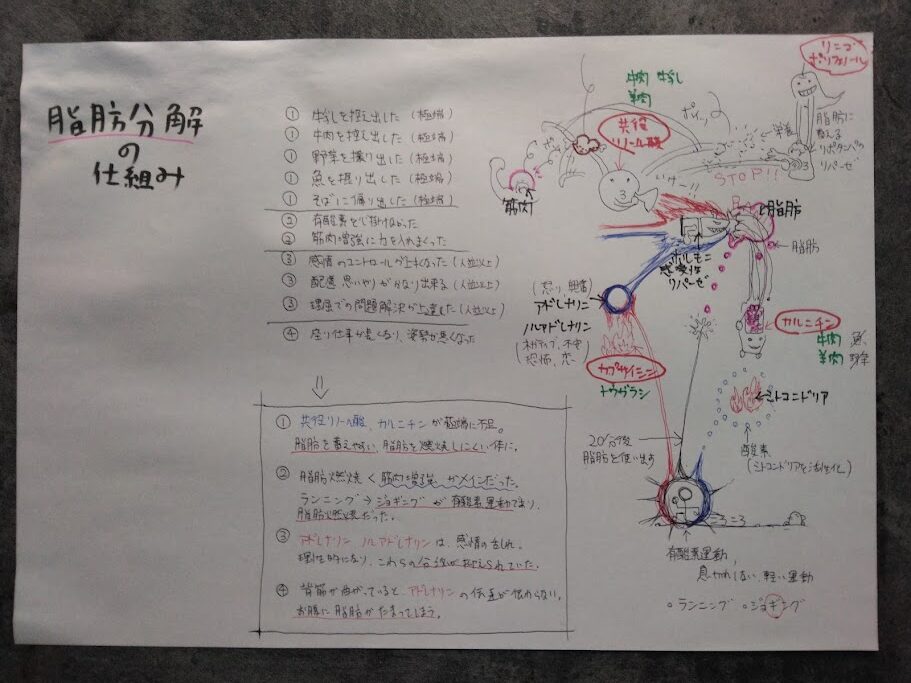 脂肪分解
の
仕組み
① 牛乳を控え出した (極端)
① 牛肉を控え出した (極端)
① 野菜を摂り出した (極端)
① 魚を摂り出した (極端)
① そばに偏り出した (極端)
② 有酸素を心掛けなかった
② 筋肉増強に力を入れまくった
③ 感情のコントロールが上手くなった (人並以上)
③ 配慮 思いやりがかなり出来る (人並以上)
③ 理屈での問題解決が上達した (人並以上)
④ 座り仕事が長くなり、姿勢が悪くなった
⇓
① 共役リノール酸、カルニチンが極端に不足。
脂肪を蓄えやすい、脂肪を燃焼しにくい体に。
② 脂肪燃焼 < 筋肉増強がメインだった。
ランニング → ジョギングが有酸素運動であり、
脂肪燃焼だった。
③ アドレナリン ノルアドレナリンは、感情の表れ。
理性的になり、これらの分泌が抑えられていた。
④ 背筋が曲がっていると アドレナリンの伝達が伝わらない。
お腹に脂肪がたまってしまう。
リンゴ
ポリフェノール
牛肉 牛乳
羊肉
ポイッ
共役
リノール酸
栄養
脂肪に
蓄える
リポタンパク
リパーゼ
STOP!!
筋肉
脂肪
脂肪
ホルモン
感受性
リパーゼ
(怒り 興奮)
アドレナリン
ノルアドレナリン
(ネガティブ、不安
恐怖、恋)
カプサイシン
トウガラシ
カルニチン
牛肉
羊肉
魚
野菜
ミトコンドリア
酸素
(ミトコンドリアを活性化)
20分後
脂肪を使い出す
ころころ
有酸素運動
息切れしない、軽い運動
○ランニング ○ジョギング